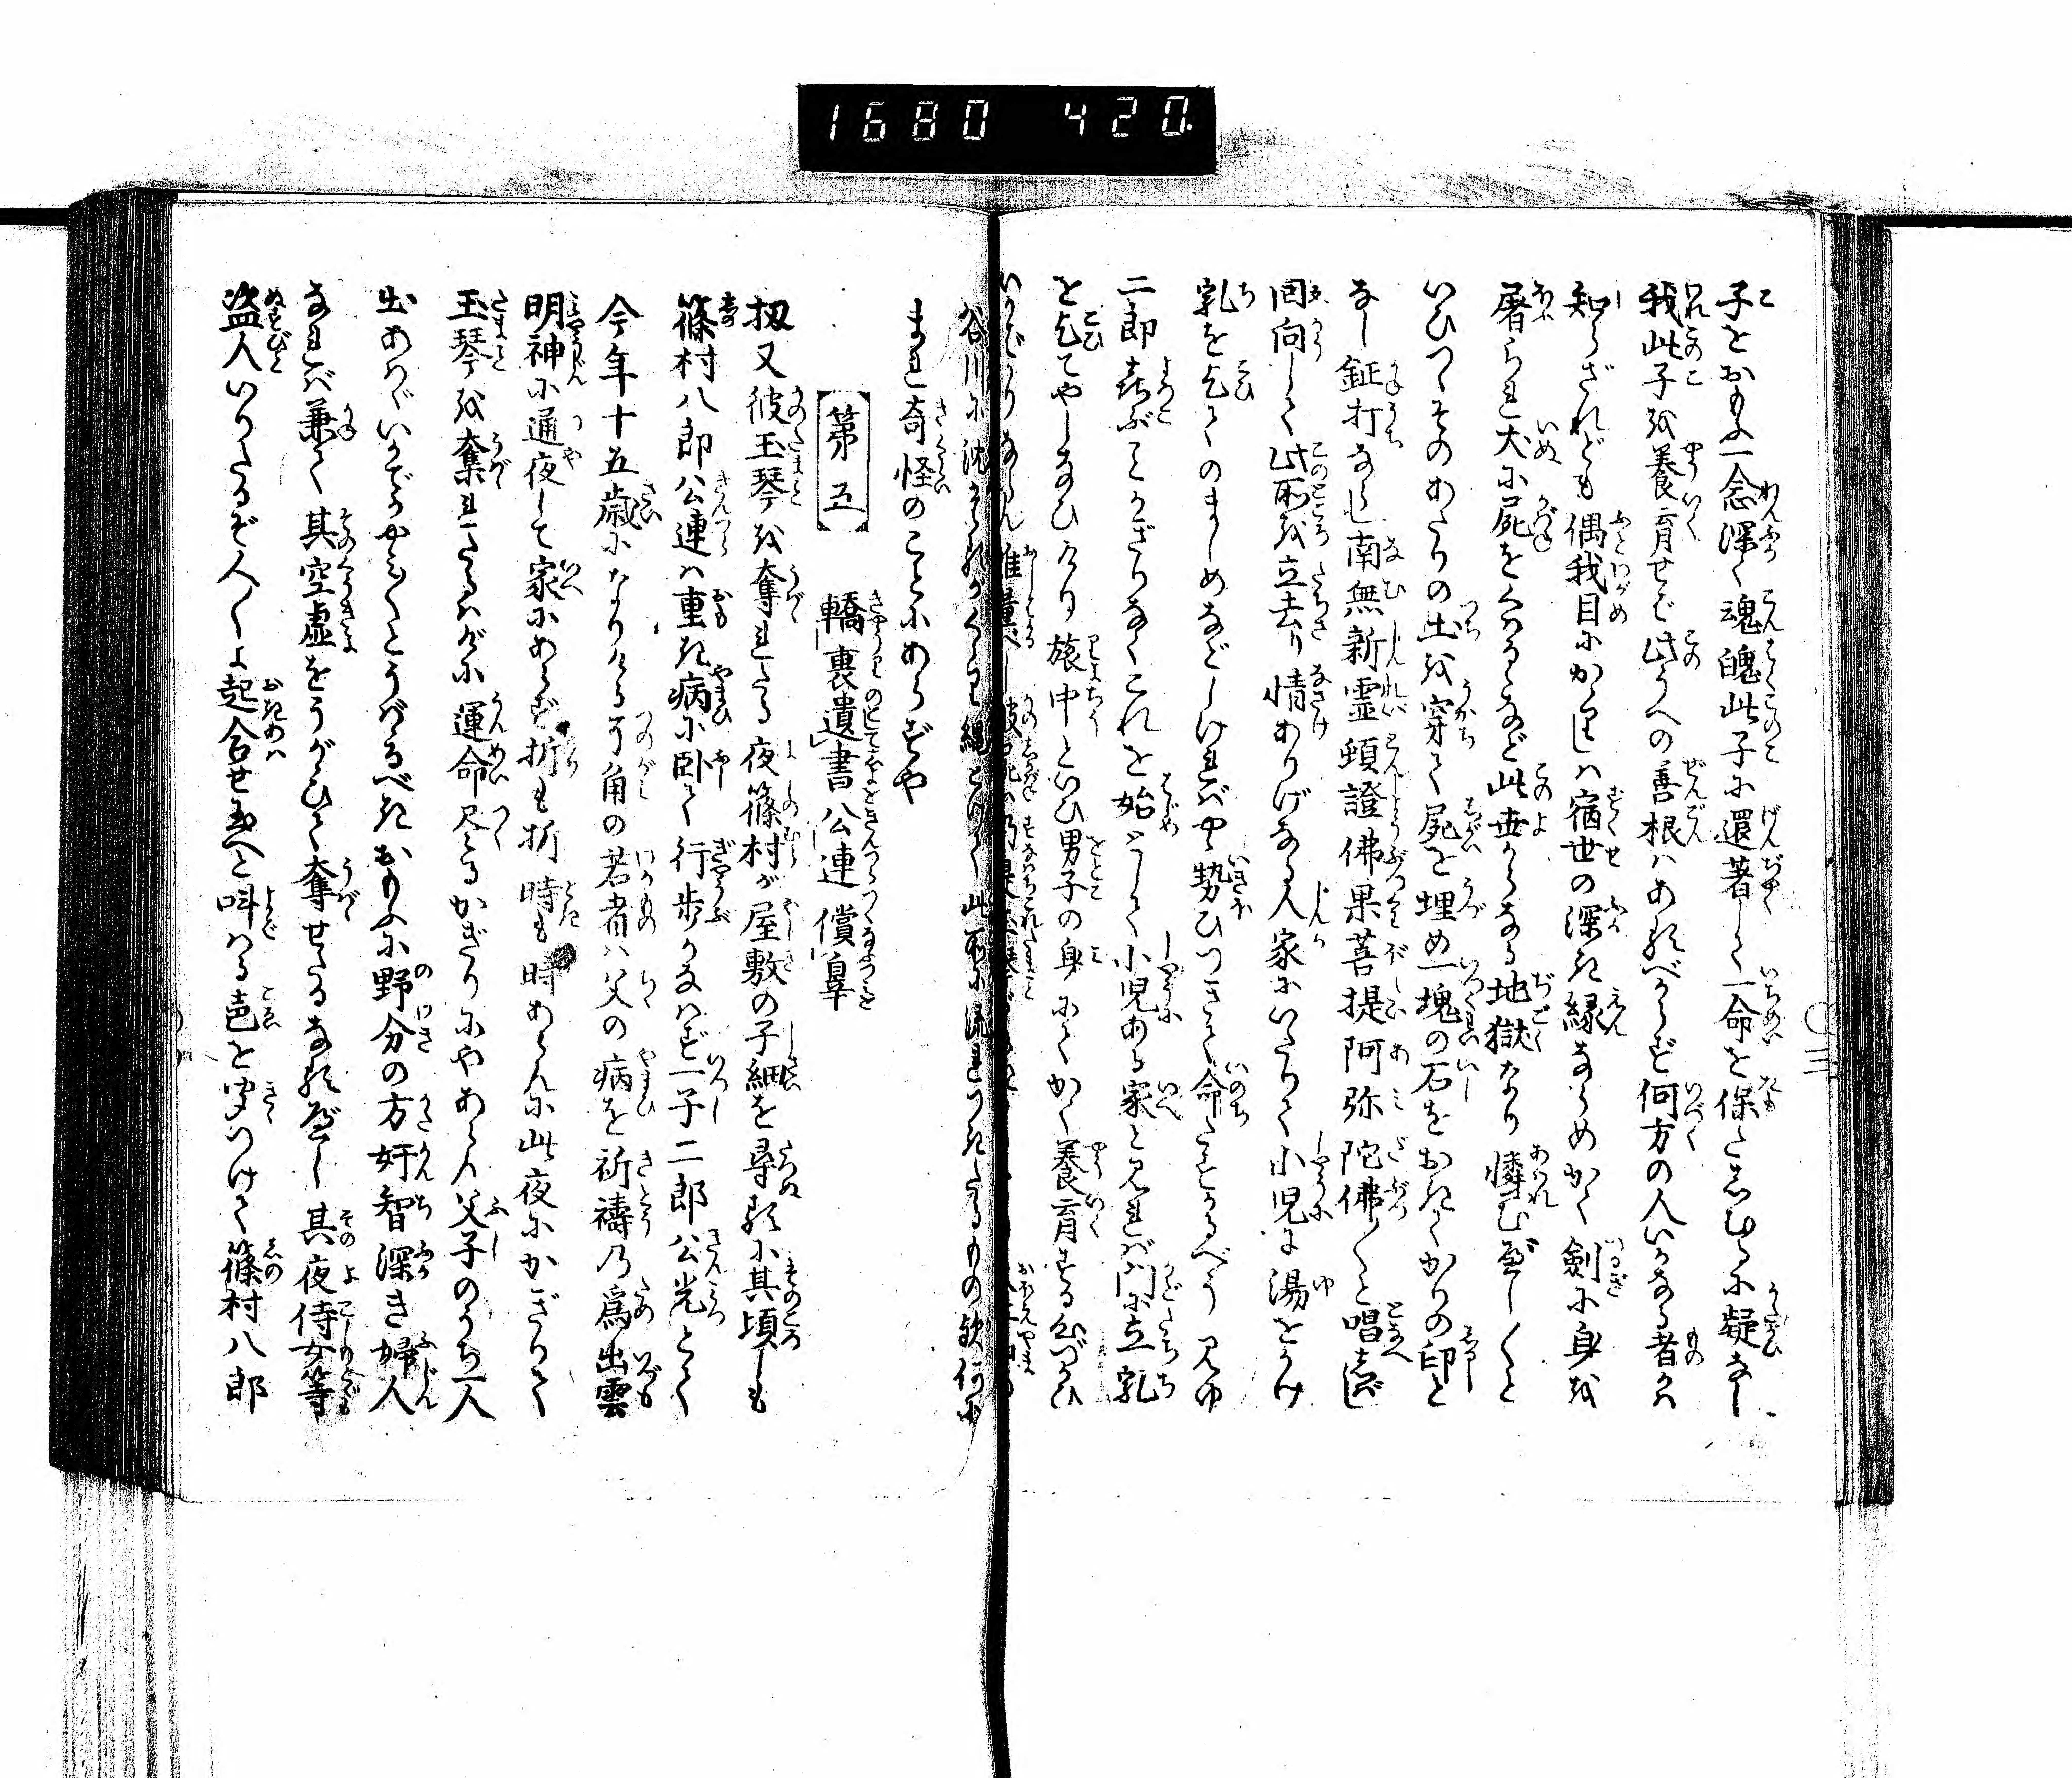 1680 420.
子をおもふ一念深く魂魄此子に還著して一命を保たしむるに疑なし
我此子を養育せば此うへの善根はあるべからず何方の人いかなる者かは
知らざれども偶我目にかゝりしは宿世の深き縁ならめかく剣に身を
屠られ犬に屍をくはるゝなど此世からなる地獄なり憐むべし〳〵と
いひつゝそのあたりの土を穿て屍を埋め一塊の石をおきてかりの印と
なし鉦打ならし南無新霊頓證佛果菩提阿弥陀佛〳〵と唱へしばし
回向して此所を立去り情ありげなる人家にいたりて小児に湯をうけ
乳を乞てのましめなどしければやゝ勢ひつきて命たすかるべう見ゆ
二郎喜ぶことかぎりなくこれを始として小児ある家と見れば門に立乳
を乞てやしなひけり旅中といひ男子の身にてかく養育する心づかひ
いかばかりならん推量べし
谷川に沈
まれ奇怪のことにあらずや
第五 轎裏遺書公連償辜
扨又彼玉琴を奪れたる夜篠村が屋敷の子細を尋るに其頃しも
篠村八郎公連は重き病に臥て行歩かなはず一子二郎公光とて
今年十五歳になりける可角の若者は父の病を祈祷の為出雲
明神に通夜して家にあらず折も折時も時あらんに此夜にかぎりて
玉琴を奪れたるはげに運命尽たるかぎりにやあらん父子のうち一人
出あはゞいかでかやみ〳〵とうばるべきおもふに野分の方奸智深き婦人
なれば兼て其空虚をうかゞひて奪せたるなるべし其夜侍女等
盗人いりたるぞ人〳〵よ起合せ玉へと叫はる声を聞つけて篠村八郎